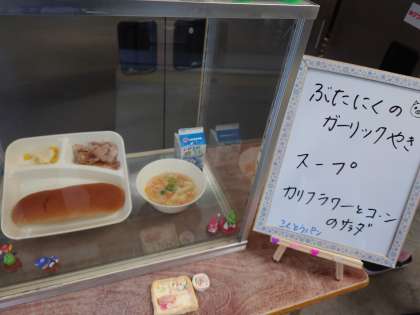 ぶたにくの
ガーリックやき
スープ
カリフラワーとコーン
のサラダ
コッペパン